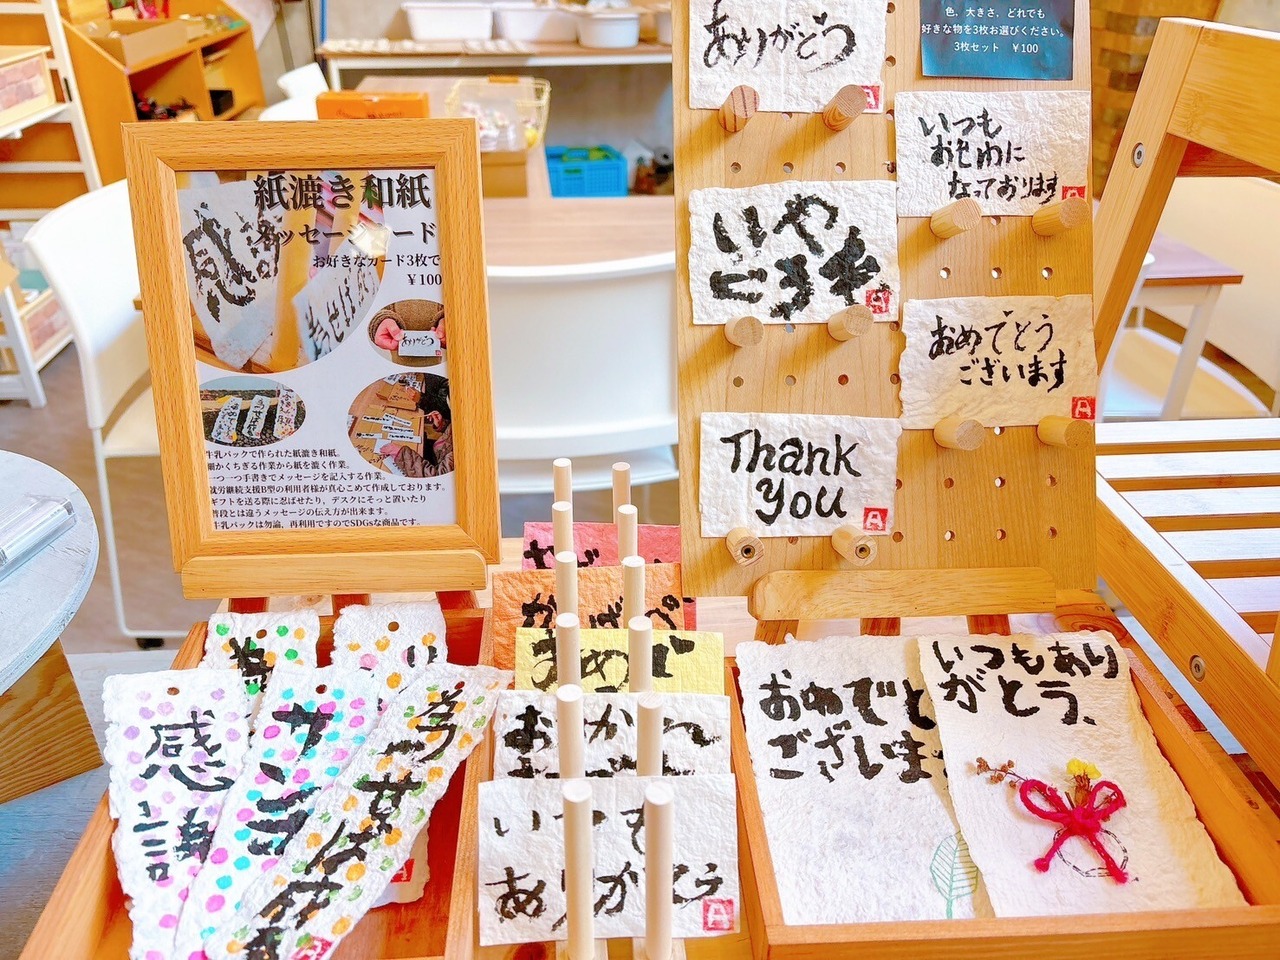 紙漉き和紙
メッセージカード
お好きなカード3枚で
¥100
牛乳パックで作られた紙漉き和紙。
細かくちぎる作業から紙を漉く作業。
一つ一つ手書きでメッセージを記入する作業。
就労継続支援B型の利用者様が真心こめて作成しております。
ギフトを送る際に忍ばせたり、デスクにそっと置いたり
普段とは違うメッセージの伝え方が出来ます。
牛乳パックは勿論、再利用ですのでSDGsな商品です。
ありがとう
色、大きさ、どれでも
好きな物を3枚お選びください。
3枚セット ¥100
ありがとう
A
いつも
おせわに
なっております
A
いや
A
おめでとう
ございます
A
Thank
you
A
感謝
いつも
ありがとう
A
おめでと
ございま
いつもあり
がとう、